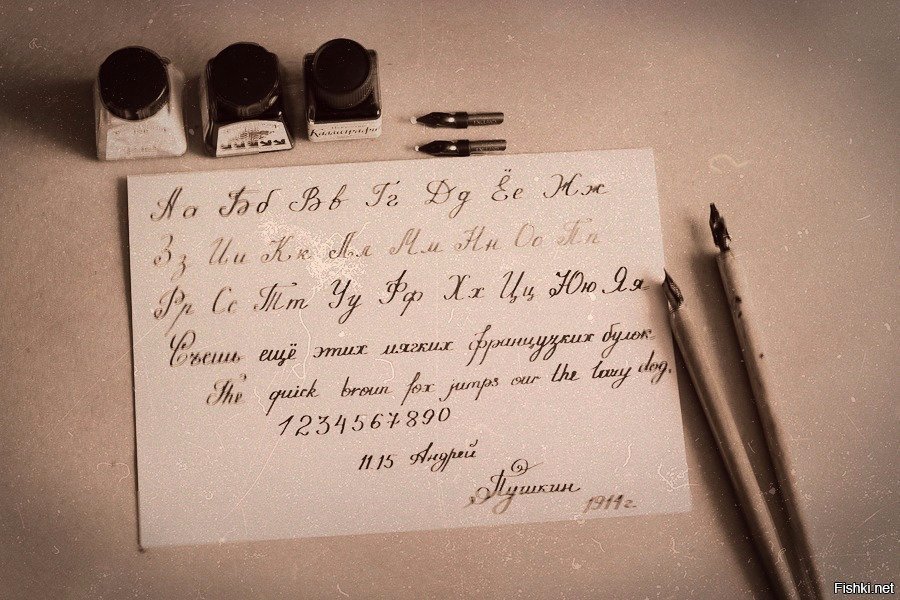 Каллиграфъ
Аа Бб Вв Гг Дд Ёё Жж
Зз Ии Кк Лл Мм Нн Оо Пп
Рр Сс Тт Уу Фф Хх Цц Юю Яя
Съешь ещё этих мягких французких булок
The quick broun fox jumps our the lazy dog.
1234567890
11.15 Андрей
Пушкин
1911 г.
Fishki.net